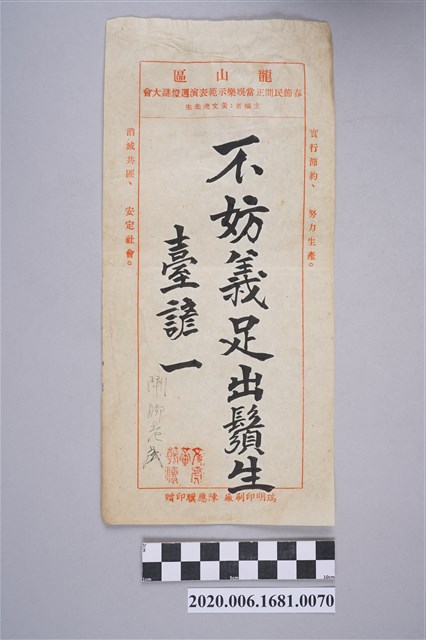 龍山區
春節民間正當娛樂示範表演週燈謎大會
主編者：黃文虎先生
實行節約、努力生產。
不妨義足出鬚生
臺諺一
消滅共匪、安定社會。
瑞明印刷廠 印贈
1cm 5cm 10cm
2020.006.1681.0070